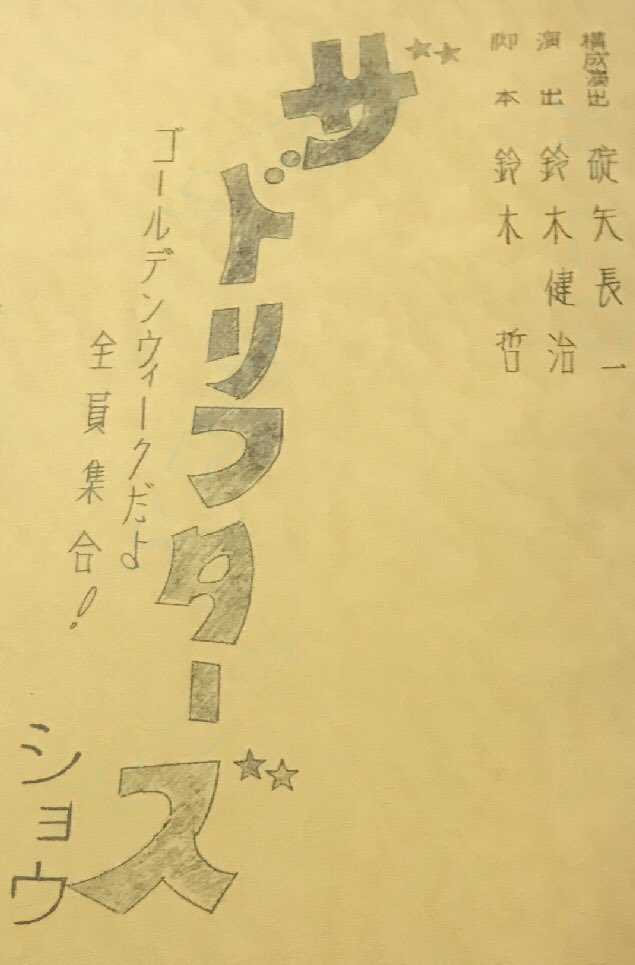 構成演出 碇矢長一
演出 鈴木健治
脚本 鈴木哲
ザドリフターズ
ゴールデンウィークだよ
全員集合!
ショウ